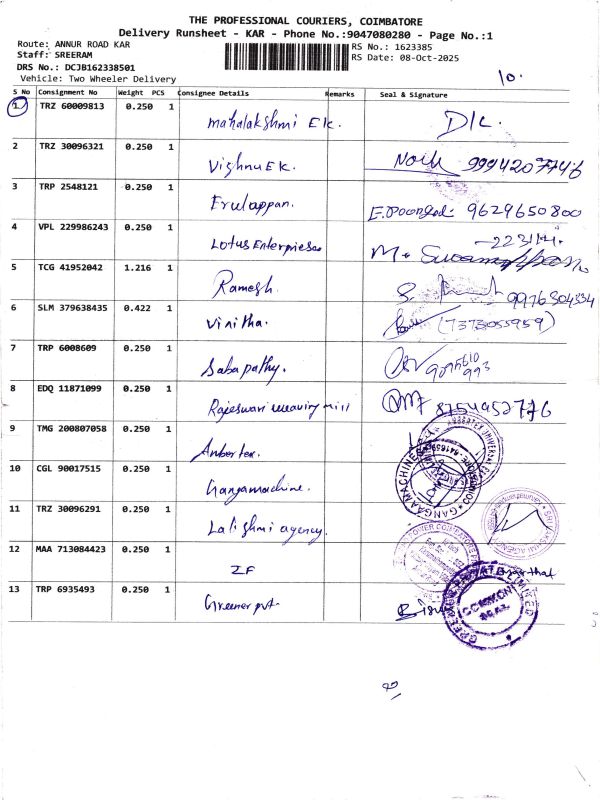 THE PROFESSIONAL COURIERS, COIMBATORE
Delivery Runsheet - KAR - Phone No.:9047080280 - Page No.:1
Route: ANNUR ROAD KAR
RS No.: 1623385
Staff: SREERAM
RS Date: 08-Oct-2025
DRS No.: DCJB162338501
Vehicle: Two Wheeler Delivery
10.
S No Consignment No Weight PCS Consignee Details Remarks Seal & Signature
1 TRZ 60009813 0.250 1 Mahalakshmi EK. D/c.
2 TRZ 30096321 0.250 1 Vishnu EK. 9994207746
3 TRP 2548121 0.250 1 Erulappan. 9629650800
4 VPL 229986243 0.250 1 Lotus Enterprises
5 TCG 41952042 1.216 1 Ramesh. 9976304334
6 SLM 379638435 0.422 1 Vinitha. (7373055959)
7 TRP 6008609 0.250 1 Sabapathy.
8 EDQ 11871099 0.250 1 Rajeswari weaving mill 8754952776
9 TMG 200807058 0.250 1 Anbertex.
10 CGL 90017515 0.250 1 Gangamachine.
11 TRZ 30096291 0.250 1 Lakshmi agency.
12 MAA 713084423 0.250 1 ZF
13 TRP 6935493 0.250 1 Greener pvt.